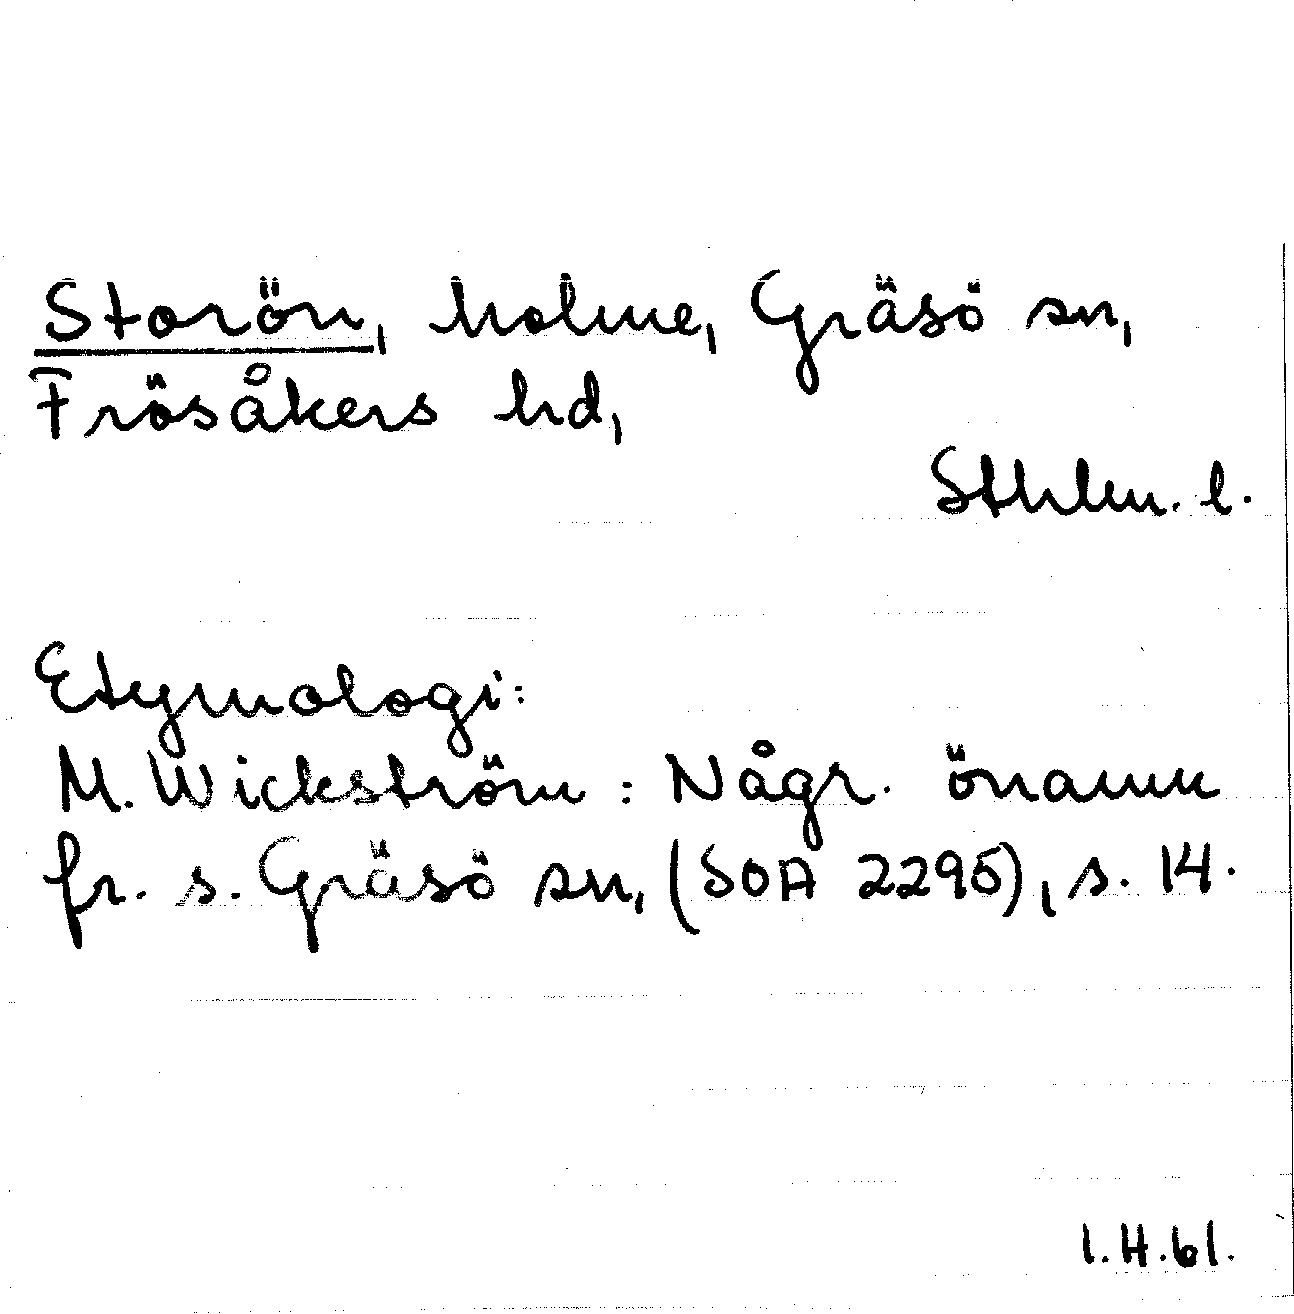 Storön, holme, Gräsö sn,
Frösåkers hd,
Sthlm. l.
Etymologi:
M. Wickström : Någr. önamn
fr. s. Gräsö sn, (SOA 2295), s. 14.
I.H.61.